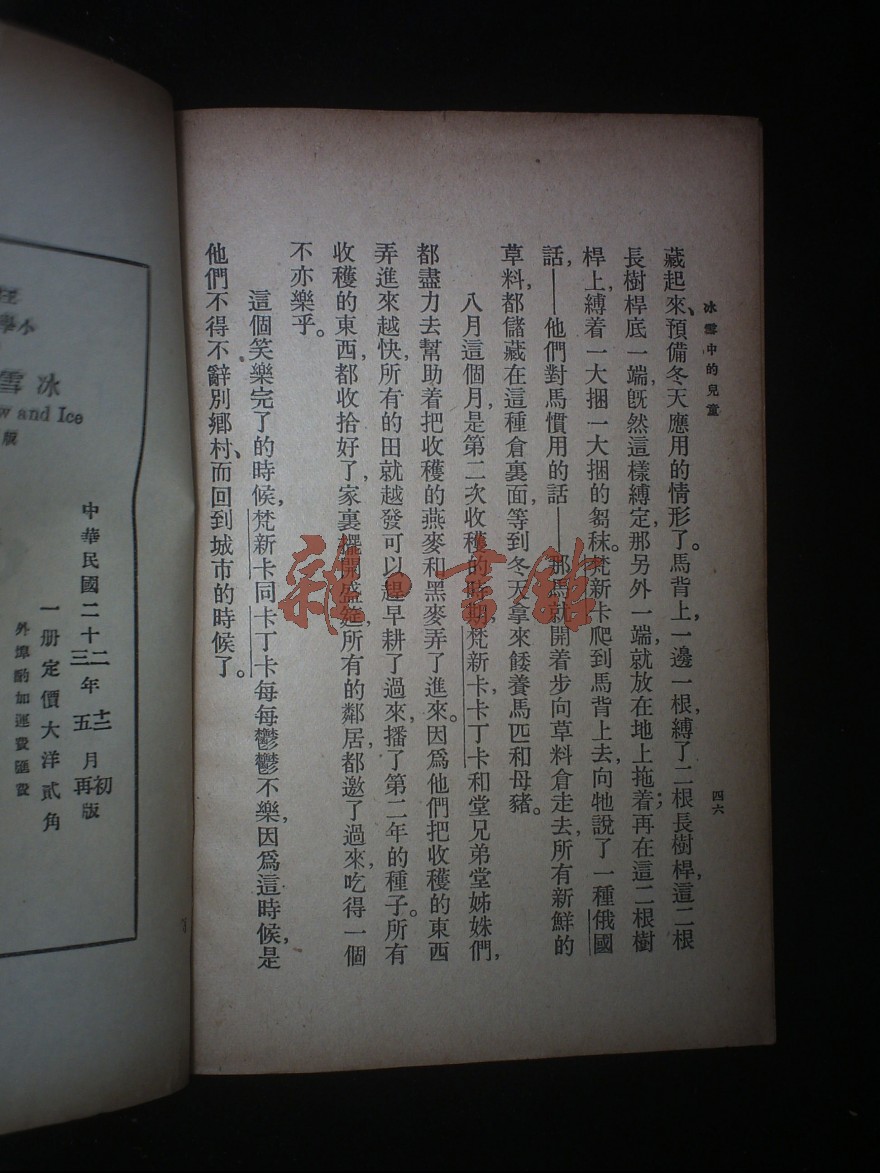 冰雪中的兒童
四六
藏起來、預備冬天應用的情形了。馬背上、一邊一根、縛了二根長樹桿、這二根
長樹桿底一端、旣然這樣縛定、那另外一端、就放在地上拖着；再在這二根樹
桿上、縛着一大捆一大捆的芻秣。梵新卡爬到馬背上去、向牠說了一種俄國
話、——他們對馬慣用的話——那馬就開着步向草料倉走去、所有新鮮的
草料、都儲藏在這種倉裏面、等到冬天拿來餧養馬匹和母豬。
八月這個月、是第二次收穫的時期、梵新卡卡丁卡和堂兄弟堂姊妹們、
都盡力去幫助着把收穫的燕麥和黑麥弄了進來。因爲他們把收穫的東西
弄進來越快、所有的田就越發可以趕早耕了過來、播了第二年的種子。所有
收穫的東西、都收拾好了、家裏擺開盛筵、所有的鄰居都邀了過來、吃得一個
不亦樂乎。
這個笑樂完了的時候、梵新卡同卡丁卡每每鬱鬱不樂、因爲這時候、是
他們不得不辭別鄉村、而回到城市的時候了。
雜·書館
中華民國二十二年十二月初版
二十三年五月再版
一册定價大洋貳角
外埠酌加運費匯費
冰雪
and Ice
版
小學